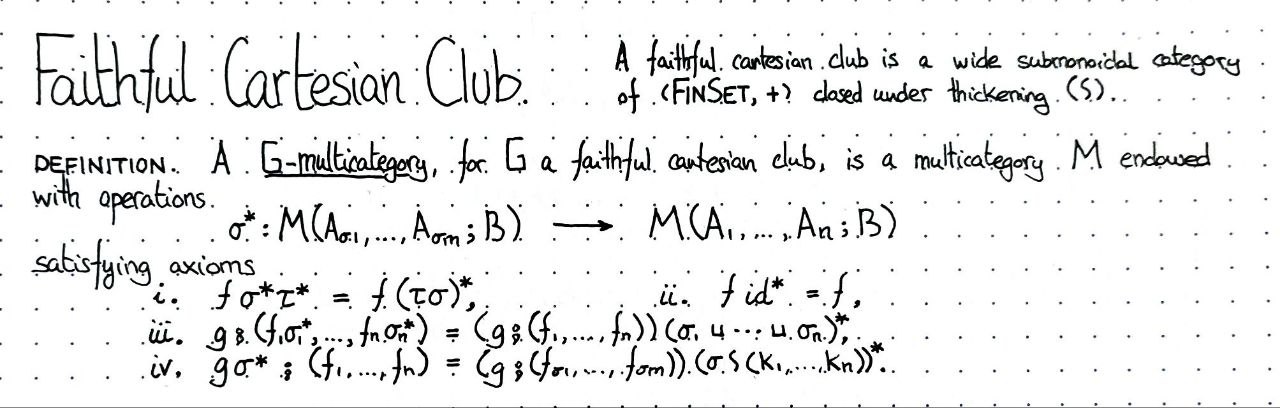 Faithful Cartesian Club.
A faithful cartesian club is a wide submonoidal category
of (FINSET, +) closed under thickening (S).
DEFINITION. A G-multicategory, for G a faithful cartesian club, is a multicategory M endowed
with operations.
σ* : M(Aσ1, ..., Aσm ; B) ⟶ M(A1, ..., An ; B)
satisfying axioms
i. fσ*τ* = f(τσ)*, ii. f id* = f,
iii. g ⨟ (f1σ1*, ..., fnσn*) = (g ⨟ (f1, ..., fn))(σ1 ⊔ ... ⊔ σn)*,
iv. gσ* ⨟ (f1, ..., fn) = (g ⨟ (fσ1, ..., fσm))(σ S(k1, ..., kn))*.